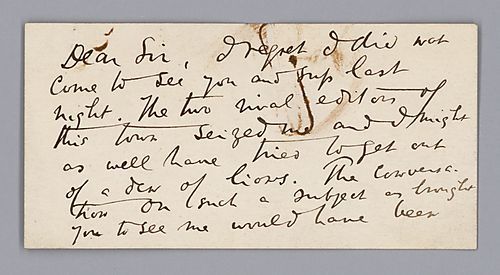 Dear Sir, I regret I did not
come to see you and sup last
night. The two rival editors of
this town seized me and I might
as well have tried to get out
of a den of lions. The conversa-
tion on such a subject as brought
you to see me would have been